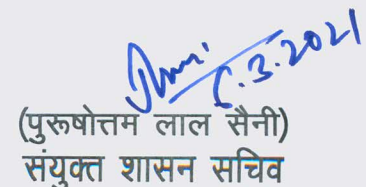 5.3.2021
(पुरूषोत्तम लाल सैनी)
संयुक्त शासन सचिव